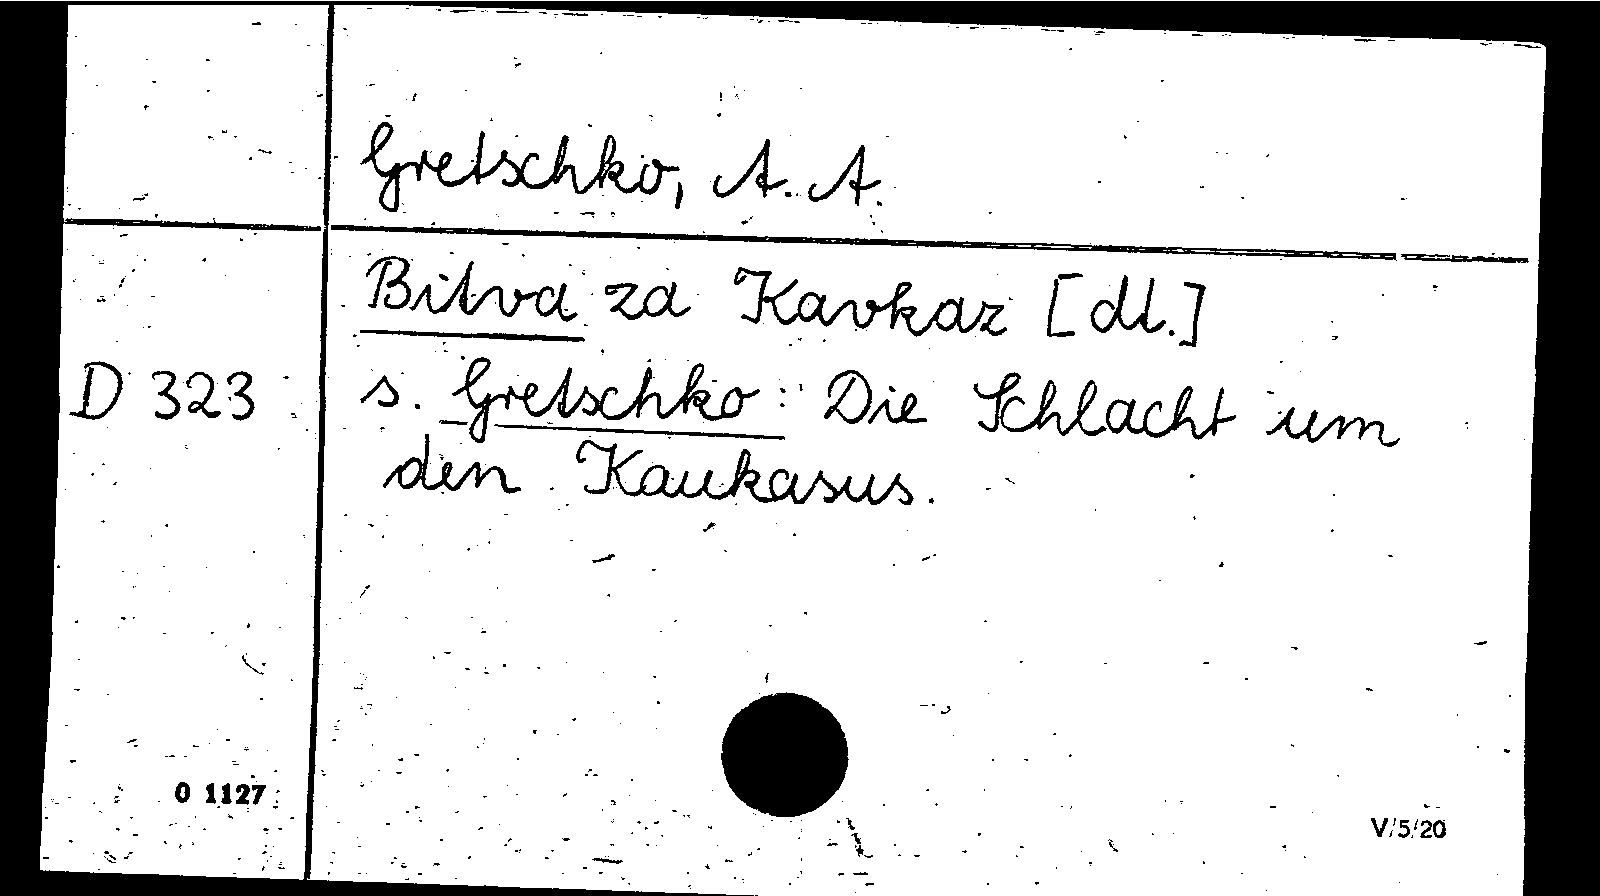 Gretschko, A. A.
Bitva za Kavkaz [dt.]
D 323 s. Gretschko: Die Schlacht um
den Kaukasus.
0 1127
V/5/20